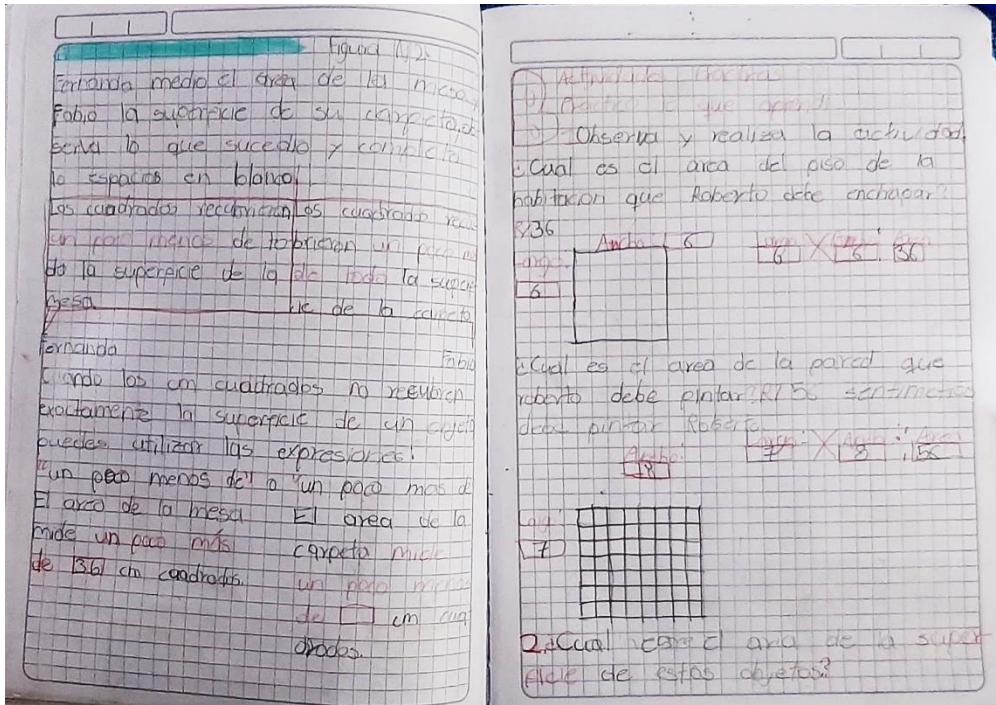 Figura 1.2.
Fernanda medio el area de la mesa y
Fabio la superficie de su carpeta.ob
serva lo que sucedio y completa
lo espacios en blanco.
Los cuadrados recubrieron
un poco menos de to
do la superficie de la
mesa
los cuadrados recu
brieron un poco
de todo la superf
icie de la carpeta
Fernanda
Fabio
Cuando los cm cuadrados no recubren
exactamente la superficie de un objeto
puedes utilizar las expresiones:
"un poco menos de" o "un poco mas d
El area de la mesa
mide un poco más
de 36 cm cuadrados.
El area de la
carpeta mide
un poco menos
de cm cua
drados.
Actividades
Practico lo que aprendi
Observa y realiza la actividad
¿Cual es el area del piso de la
habitacion que Roberto debe enchapar?
R/36
Ancho 6
Largo
6
Largo X Ancho : Area
6 6 36
¿Cual es el area de la pared que
roberto debe pintar? R/ 56 sentimetros
debe pintar Roberto
Ancho
8
Largo X : Area
7 8 56
7
2.¿Cual es el aria de la super
ficie de estos objetos?